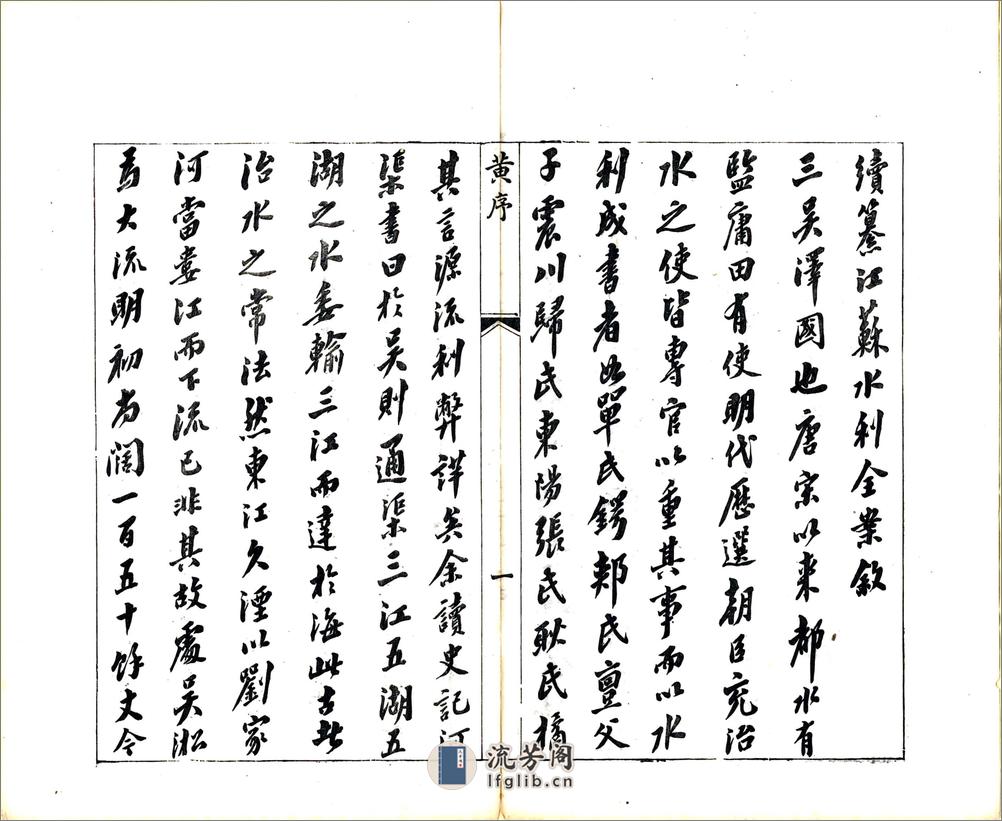 續纂江蘇水利全案敘
三吳澤國也唐宋以來都水有
監庸田有使明代歷選朝臣充治
水之使皆專官以重其事而以水
利成書者如單氏鍔郟氏亶父
子震川歸氏東陽張氏耿氏橘
黄序
一
其言源流利弊詳矣余讀史記河
渠書曰於吳則通渠三江五湖五
湖之水委輸三江而達於海此古
治水之常法然東江久湮以劉家
河當婁江而下流已非其故處吳淞
為大流明初尚闊一百五十餘丈今
流芳阁
lfglib.cn